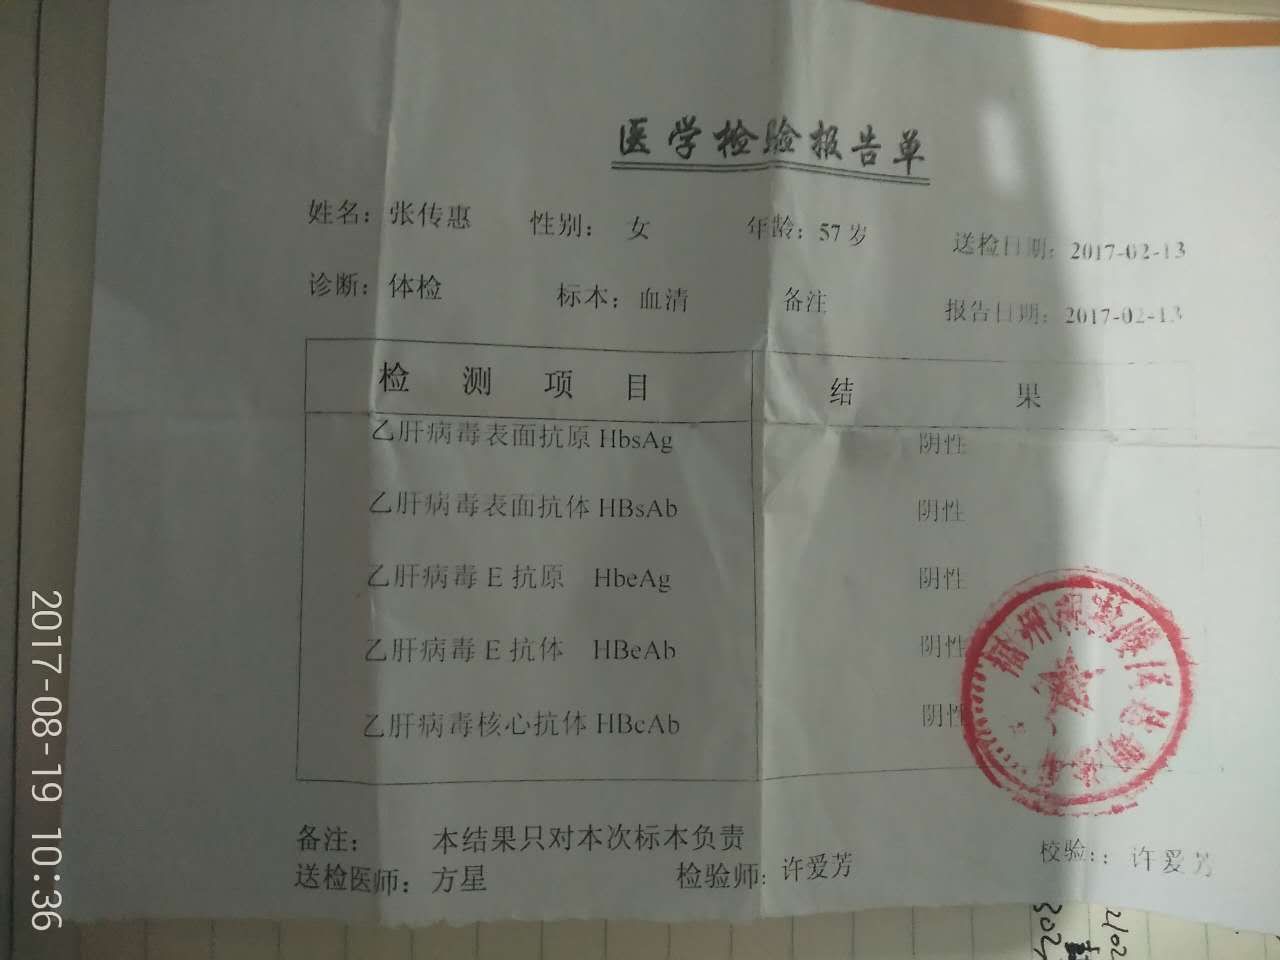 医学检验报告单
姓名：张传惠 性别： 女 年龄：57岁 送检日期：2017-02-13
诊断：体检 标本：血清 备注 报告日期：2017-02-13
检 测 项 目 结 果
乙肝病毒表面抗原 HbsAg 阴性
乙肝病毒表面抗体 HBsAb 阴性
乙肝病毒 E 抗原 HbeAg 阴性
乙肝病毒 E 抗体 HBeAb 阴性
乙肝病毒核心抗体 HBcAb 阴性
福州
备注： 本结果只对本次标本负责
送检医师：方星 检验师：许爱芳 校验：：许爱芳
2017-08-19 10:36